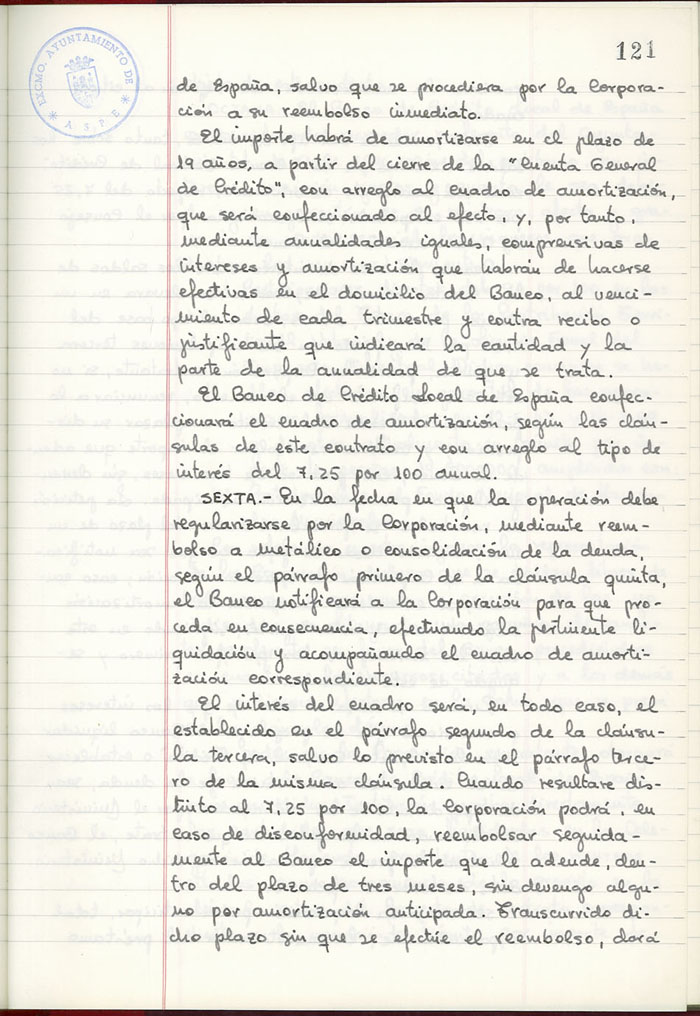 121
EXCMO. AYUNTAMIENTO DE
* ASPE *
de España, salvo que se procediera por la Corpora-
ción a su reembolso inmediato.
El importe habrá de amortizarse en el plazo de
19 años, a partir del cierre de la "Cuenta General
de Crédito", con arreglo al cuadro de amortización,
que será confeccionado al efecto, y, por tanto,
mediante anualidades iguales, comprensivas de
intereses y amortización que habrán de hacerse
efectivas en el domicilio del Banco, al venci-
miento de cada trimestre y contra recibo o
justificante que indicará la cantidad y la
parte de la anualidad de que se trata.
El Banco de Crédito Local de España confec-
cionará el cuadro de amortización, según las cláu-
sulas de este contrato y con arreglo al tipo de
interés del 7,25 por 100 anual.
SEXTA.- En la fecha en que la operación debe
regularizarse por la Corporación, mediante reem-
bolso a metálico o consolidación de la deuda,
según el párrafo primero de la cláusula quinta,
el Banco notificará a la Corporación para que pro-
ceda en consecuencia, efectuando la pertinente li-
quidación y acompañando el cuadro de amorti-
zación correspondiente.
El interés del cuadro será, en todo caso, el
establecido en el párrafo segundo de la cláusu-
la tercera, salvo lo previsto en el párrafo terce-
ro de la misma cláusula. Cuando resultare dis-
tinto al 7,25 por 100, la Corporación podrá, en
caso de disconformidad, reembolsar seguida-
mente al Banco el importe que le adeude, den-
tro del plazo de tres meses, sin devengo algu-
no por amortización anticipada. Transcurrido di-
cho plazo sin que se efectúe el reembolso, dará